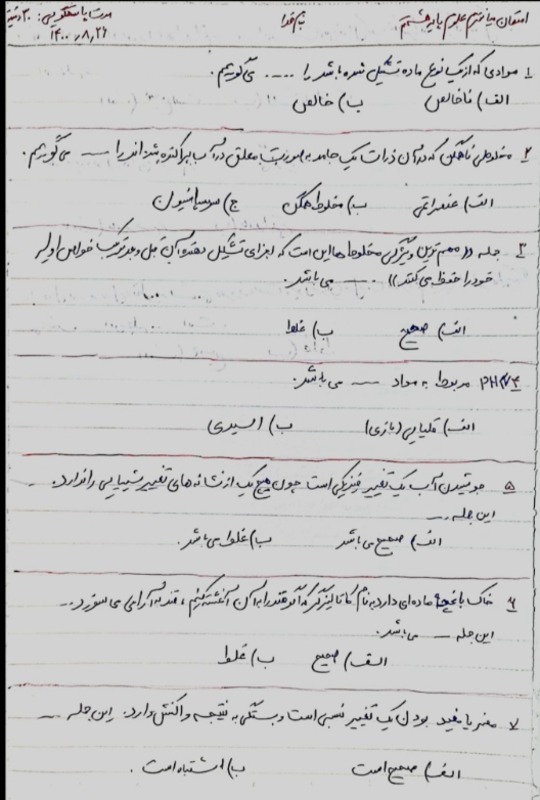 امتحان میان‌ترم علوم پایه هشتم بنام خدا مدت پاسخگویی: ۳۰ دقیقه
۱۴۰۰,۸,۲۶
۱ موادی که از یک نوع ماده تشکیل شده باشد را ..... می‌گوییم.
الف) ناخالص ب) خالص
۲ مخلوطی ناهمگن که در آن ذرات یک جامد به صورت معلق در آب پراکنده شده‌اند را ---- می‌گوییم.
الف) عنصر اتمی ب) مخلوط همگن ج) سوسپانسیون
۳ جمله ((مهم ترین ویژگی مخلوط‌ها این است که اجزای تشکیل دهنده آن قبل و بعد ترکیب خواص اولیه
خود را حفظ می‌کنند)) ..... می باشد.
الف) صحیح ب) غلط
۴ PH مربوط به مواد ---- می باشد.
الف) قلیایی (بازی) ب) اسیدی
۵ جوشیدن آب یک تغییر فیزیکی است چون هیچ یک از نشانه های تغییر شیمیایی را ندارد.
این جمله --
الف) صحیح می باشد ب) غلط می باشد.
۶ خاک باغچه ماده‌ای دارد به نام کاتالیزگر که اگر قند را به آن آغشته کنیم، قند به آرامی می سوزد --
این جمله ---- می باشد.
الف) صحیح ب) غلط
۷ مضر یا مفید بودن یک تغییر نسبی است و بستگی به نتیجه واکنش دارد. این جمله --
الف) صحیح است ب) اشتباه است.